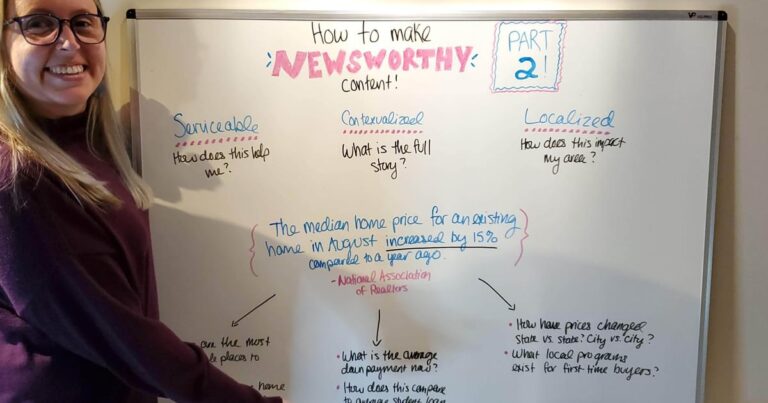 How to make
NEWSWORTHY
content!
PART
2!
Serviceable
How does this help
me?
Contextualized
What is the full
story?
Localized
How does this impact
my area?
The median home price for an existing
home in August increased by 15%
compared to a year ago.
- National Association
of Realtors
are the most
places to
home
• What is the average
down payment now?
• How does this compare
to average student loan
• How have prices changed
State vs. state? City vs. city?
• What local programs
exist for first time buyers?